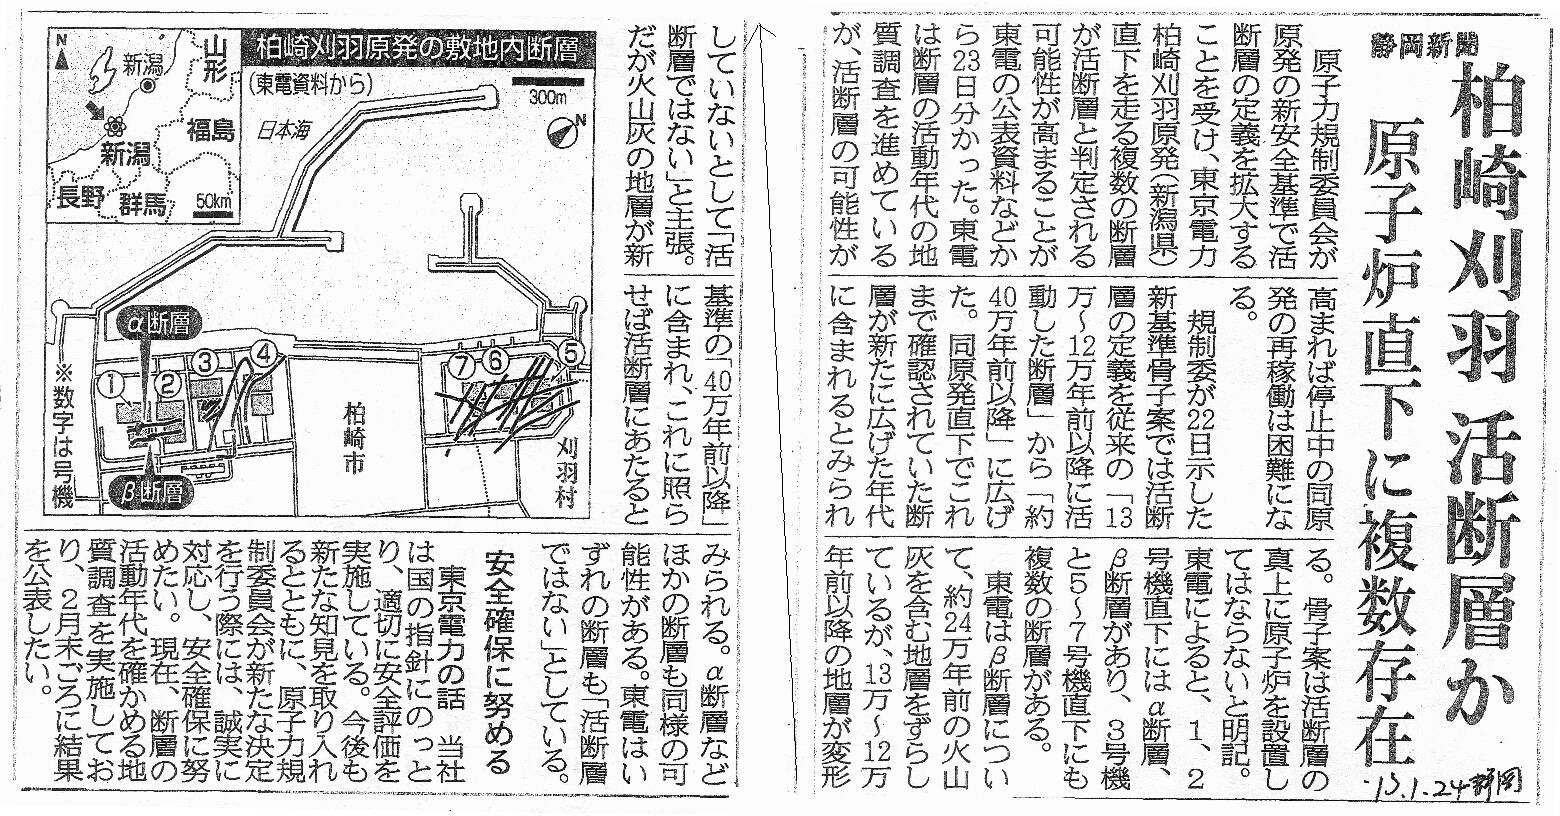 静岡新聞
柏崎刈羽 活断層か
原子炉直下に複数存在
原子力規制委員会が
原発の新安全基準で活
断層の定義を拡大する
ことを受け、東京電力
柏崎刈羽原発(新潟県)
直下を走る複数の断層
が活断層と判定される
可能性が高まることが
東電の公表資料などか
ら23日分かった。東電
は断層の活動年代の地
質調査を進めている
が、活断層の可能性が
高まれば停止中の同原
発の再稼働は困難にな
る。
規制委が22日示した
新基準骨子案では活断
層の定義を従来の「13
万〜12万年前以降に活
動した断層」から「約
40万年前以降」に広げ
た。同原発直下でこれ
まで確認されていた断
層が新たに広げた年代
に含まれるとみられ
る。骨子案は活断層の
真上に原子炉を設置し
てはならないと明記。
東電によると、1、2
号機直下にはα断層、
β断層があり、3号機
と5〜7号機直下にも
複数の断層がある。
東電はβ断層につい
て、約24万年前の火山
灰を含む地層をずらし
ているが、13万〜12万
年前以降の地層が変形
していないとして「活
断層ではない」と主張。
だが火山灰の地層が新
基準の「40万年前以降」
に含まれ、これに照ら
せば活断層にあたると
みられる。α断層など
ほかの断層も同様の可
能性がある。東電はい
ずれの断層も「活断層
ではない」としている。
安全確保に努める
東京電力の話 当社
は国の指針にのっと
り、適切に安全評価を
実施している。今後も
新たな知見を取り入れ
るとともに、原子力規
制委員会が新たな決定
を行う際には、誠実に
対応し、安全確保に努
めたい。現在、断層の
活動年代を確かめる地
質調査を実施してお
り、2月末ごろに結果
を公表したい。
柏崎刈羽原発の敷地内断層
(東電資料から)
300m
N
日本海
N
山形
新潟
福島
新潟
長野
群馬
50km
α断層
β断層
①
②
③
④
⑦
⑥
⑤
柏崎市
刈羽村
※数字は号機
'13.1.24 静岡